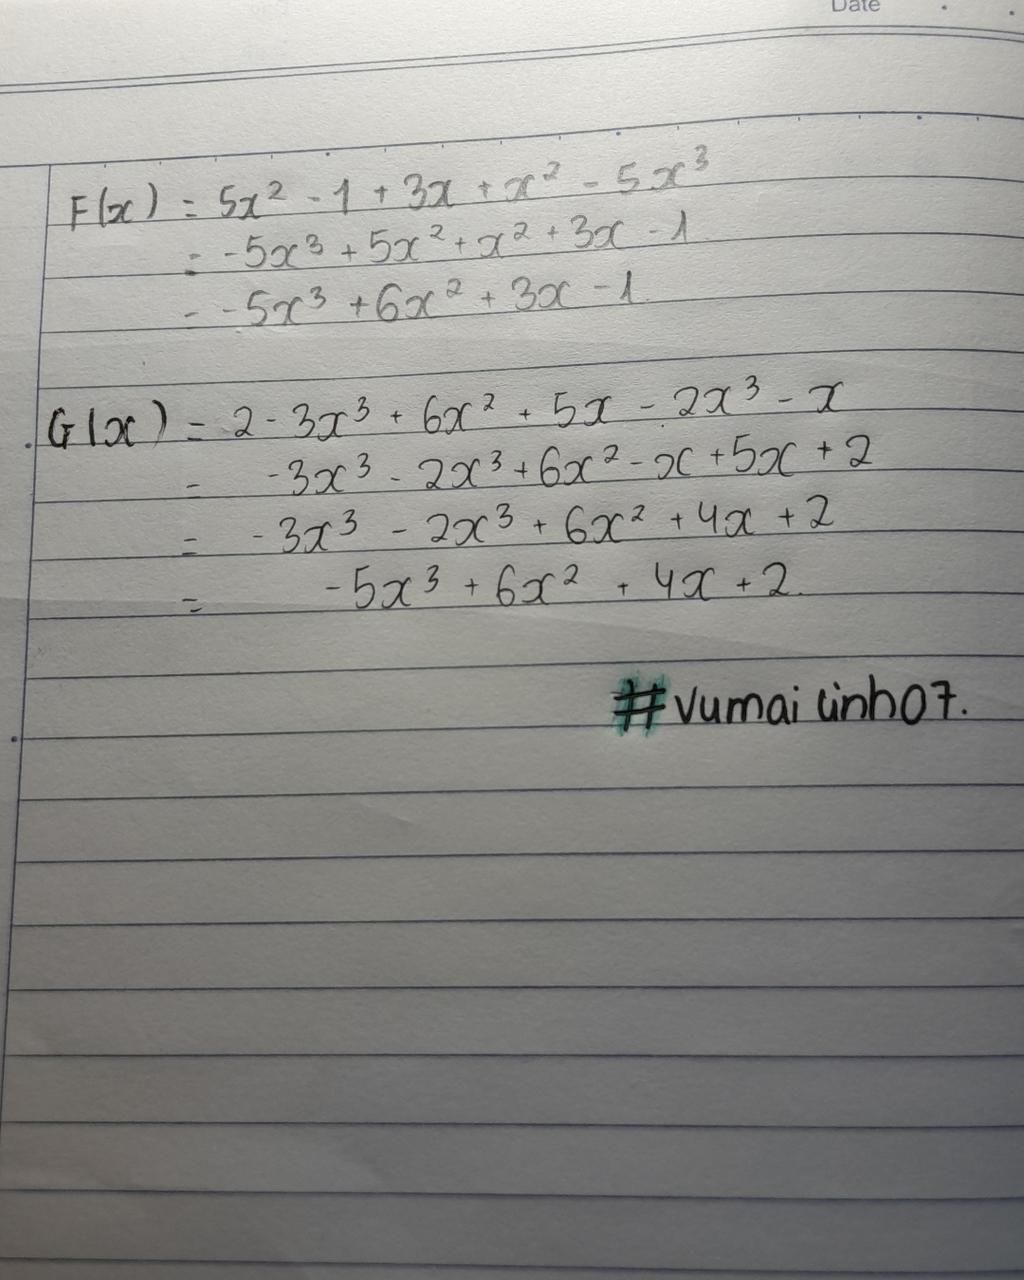 Date
F(x) = 5x² - 1 + 3x + x² - 5x³
= -5x³ + 5x² + x² + 3x - 1
= -5x³ + 6x² + 3x - 1
G(x) = 2 - 3x³ + 6x² + 5x - 2x³ - x
= -3x³ - 2x³ + 6x² - x + 5x + 2
= -3x³ - 2x³ + 6x² + 4x + 2
= -5x³ + 6x² + 4x + 2.
#vumai linh07.